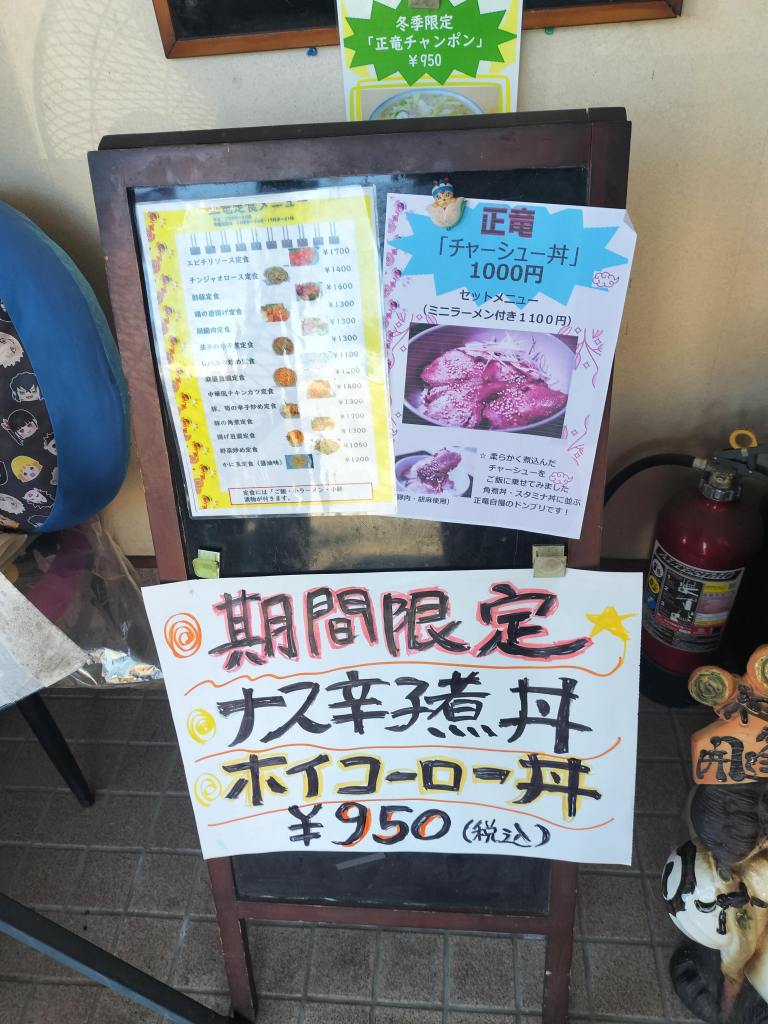 冬季限定
「正竜チャンポン」
￥950
正竜定食メニュー
エビチリソース定食
￥1700
チンジャオロース定食
￥1400
酢豚定食
￥1600
鶏の唐揚げ定食
￥1300
回鍋肉定食
￥1300
茄子の辛子煮定食
￥1300
レバニラ炒めに定食
￥1100
麻婆豆腐定食
中華風チキンカツ定食
豚、筍の辛子炒め定食
￥1300
豚の角煮定食
￥1700
揚げ豆腐定食
￥1300
野菜炒め定食
￥1050
かに玉定食（醤油味）
￥1200
定食には「ご飯・小ラーメン・小鉢
漬物が付きます。
正竜
「チャーシュー丼」
1000円
セットメニュー
（ミニラーメン付き１１００円）
☆ 柔らかく煮込んだ
チャーシューを
ご飯に乗せてみました
角煮丼・スタミナ丼に並ぶ
正竜自慢のドンブリです！
豚肉・胡麻使用）
期間限定
ナス辛子煮丼
ホイコーロー丼
￥950（税込）